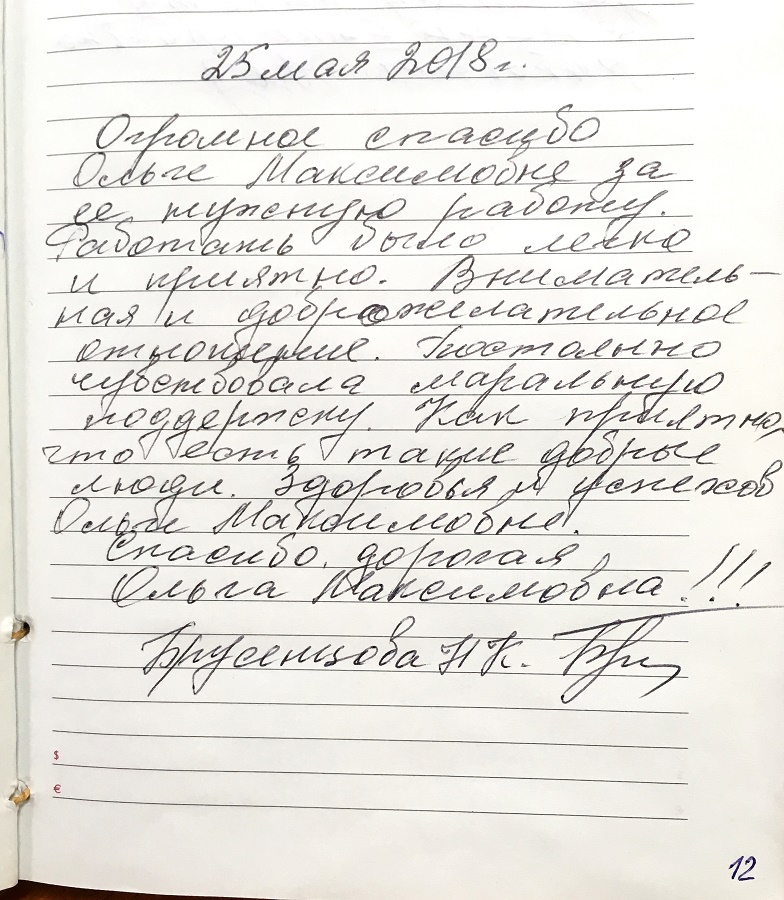 25 мая 2018 г.
Огромное спасибо
Ольге Максимовне за
ее нужную работу.
Работать было легко
и приятно. Вниматель-
ная и доброжелательное
отношение. Постоянно
чувствовала маральную
поддержку. Как приятно,
что есть такие добрые
люди. Здоровья и успехов
Ольге Максимовне.
Спасибо, дорогая
Ольга Максимовна!!!
Брусенцова Н К.
$
€
12